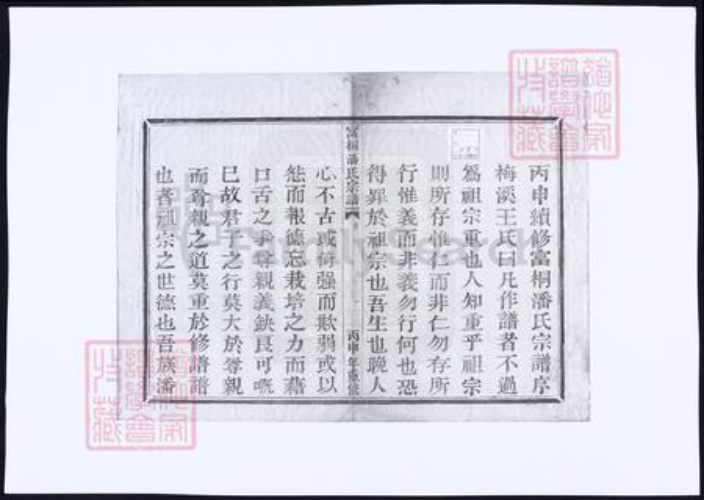 丙申續修富桐潘氏宗譜序
梅溪王氏曰凡作譜者不過
爲祖宗重也人知重乎祖宗
則所存惟仁而非仁勿存所
行惟義而非義勿行何也恐
得罪於祖宗也吾生也晚人
富桐潘氏宗譜
丙申年重修
心不古或倚强而欺弱或以
怨而報德忘栽培之力而藉
口舌之爭尊親義缺良可嘅
巳故君子之行莫大於尊親
而尊親之道莫重於修譜譜
也者祖宗之世德也吾族潘
譜學會
特藏
FamilySearch